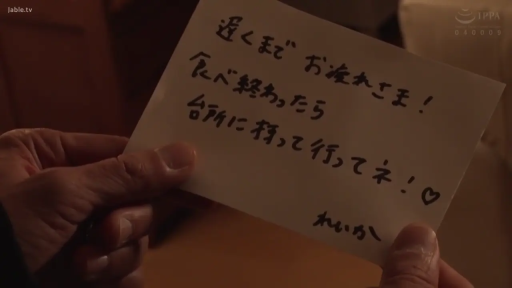 Jable.tv
遅くまで お疲れさま!
食べ終わったら
台所に持って行ってネ!♡
れいか